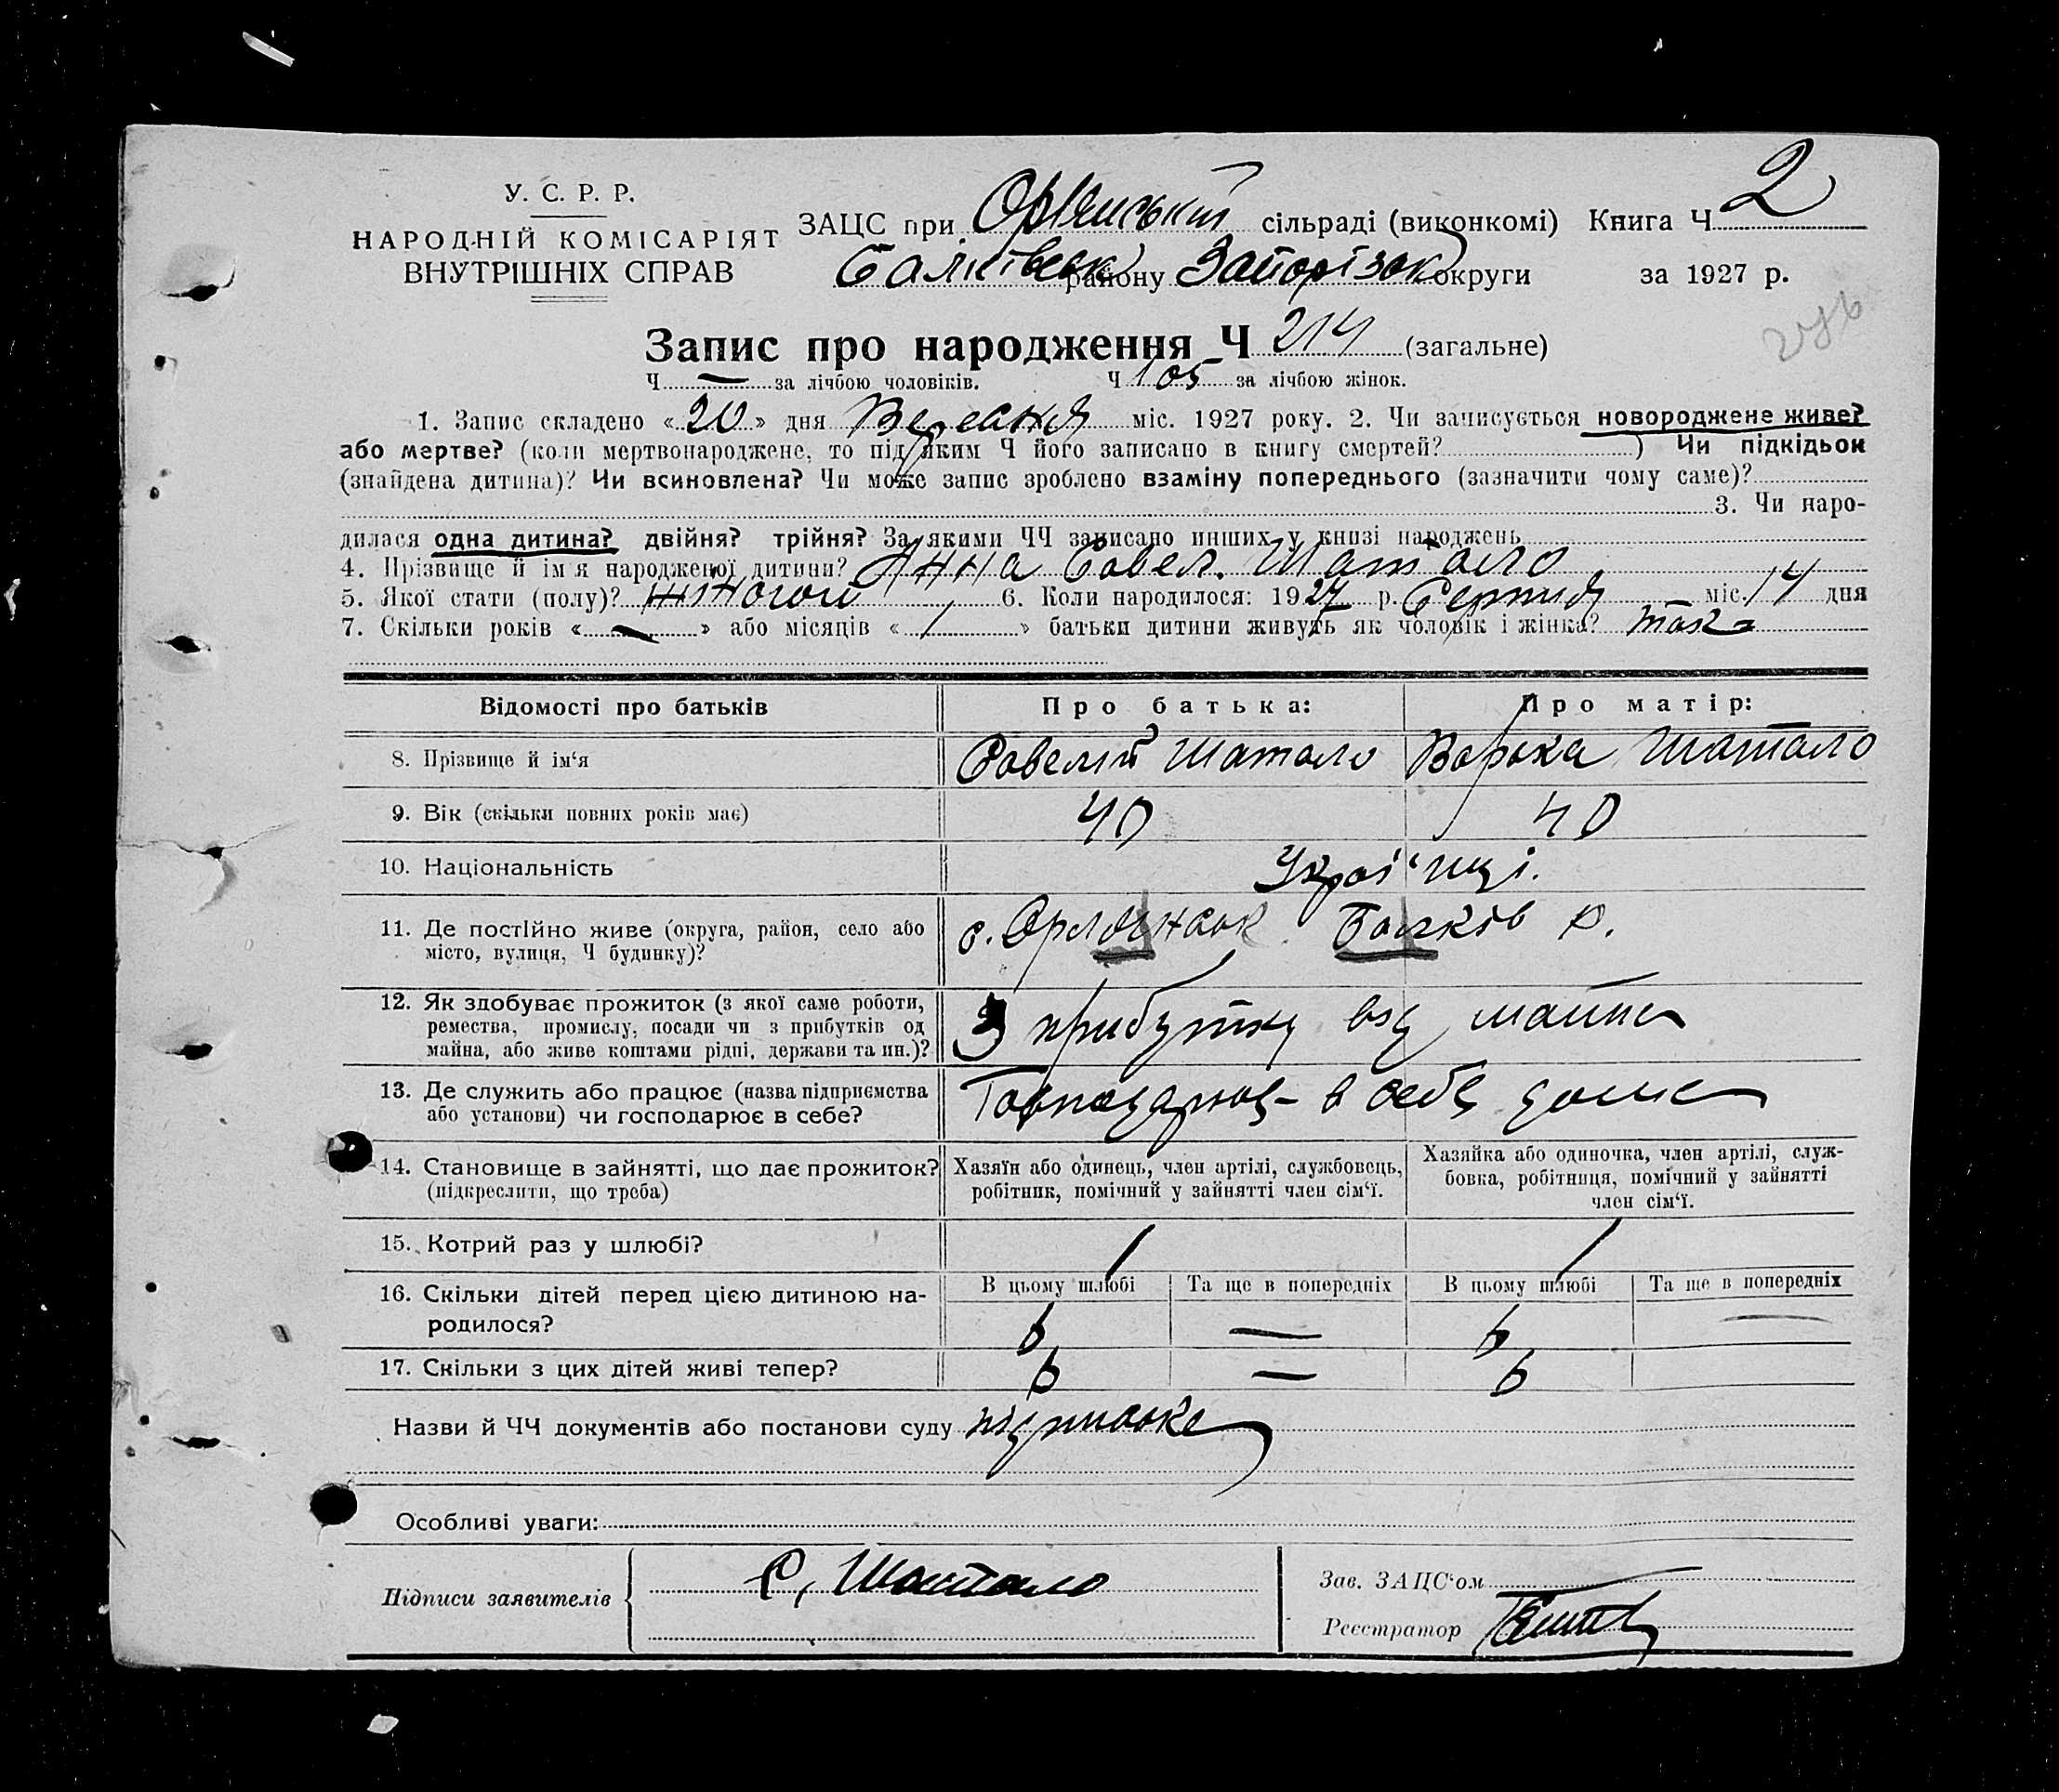 У. С. Р. Р.
НАРОДНІЙ КОМІСАРІЯТ
ВНУТРІШНІХ СПРАВ
ЗАЦС при сільраді (виконкомі) Книга Ч 2
району Запорізьк округи за 1927 р.
Запис про народження Ч 214 (загальне)
Ч — за лічбою чоловіків. Ч 105 за лічбою жінок.
1. Запис складено «20» дня Вересня міс. 1927 року. 2. Чи записується новороджене живе?
або мертве? (коли мертвонароджене, то під яким Ч його записано в книгу смертей? ) Чи підкідьок
(знайдена дитина)? Чи всиновлена? Чи може запис зроблено взаміну попереднього (зазначити чому саме)?
3. Чи наро-
дилася одна дитина? двійня? трійня? За якими ЧЧ записано инших у книзі народжень
4. Прізвище й ім'я народженої дитини? Анна Савел. Шатало
5. Якої стати (полу)? жіночої 6. Коли народилося: 1927 р. Серпня міс. 14 дня
7. Скільки років « — » або місяців « » батьки дитини живуть як чоловік і жінка?
Відомості про батьків Про батька: Про матір:
8. Прізвище й ім'я Савелій Шатало Варька Шатало
9. Вік (скільки повних років має) 40 40
10. Національність Украї'нці.
11. Де постійно живе (округа, район, село або
місто, вулиця, Ч будинку)? с. Балків р.
12. Як здобуває прожиток (з якої саме роботи,
ремества, промислу, посади чи з прибутків од
майна, або живе коштами рідні, держави та ин.)? З прибутку від майна
13. Де служить або працює (назва підприємства
або установи) чи господарює в себе? Господарює в себе дома
14. Становище в зайнятті, що дає прожиток?
(підкреслити, що треба)
Хазяїн або одинець, член артілі, службовець,
робітник, помічний у зайнятті член сім'ї.
Хазяйка або одиночка, член артілі, служ-
бовка, робітниця, помічний у зайнятті
член сім'ї.
15. Котрий раз у шлюбі? 1 1
В цьому шлюбі Та ще в попередніх В цьому шлюбі Та ще в попередніх
16. Скільки дітей перед цією дитиною на-
родилося? 6 — 6 —
17. Скільки з цих дітей живі тепер? 6 — 6
Назви й ЧЧ документів або постанови суду
Особливі уваги:
Підписи заявителів С. Шатало
Зав. ЗАЦС'ом
Реєстратор